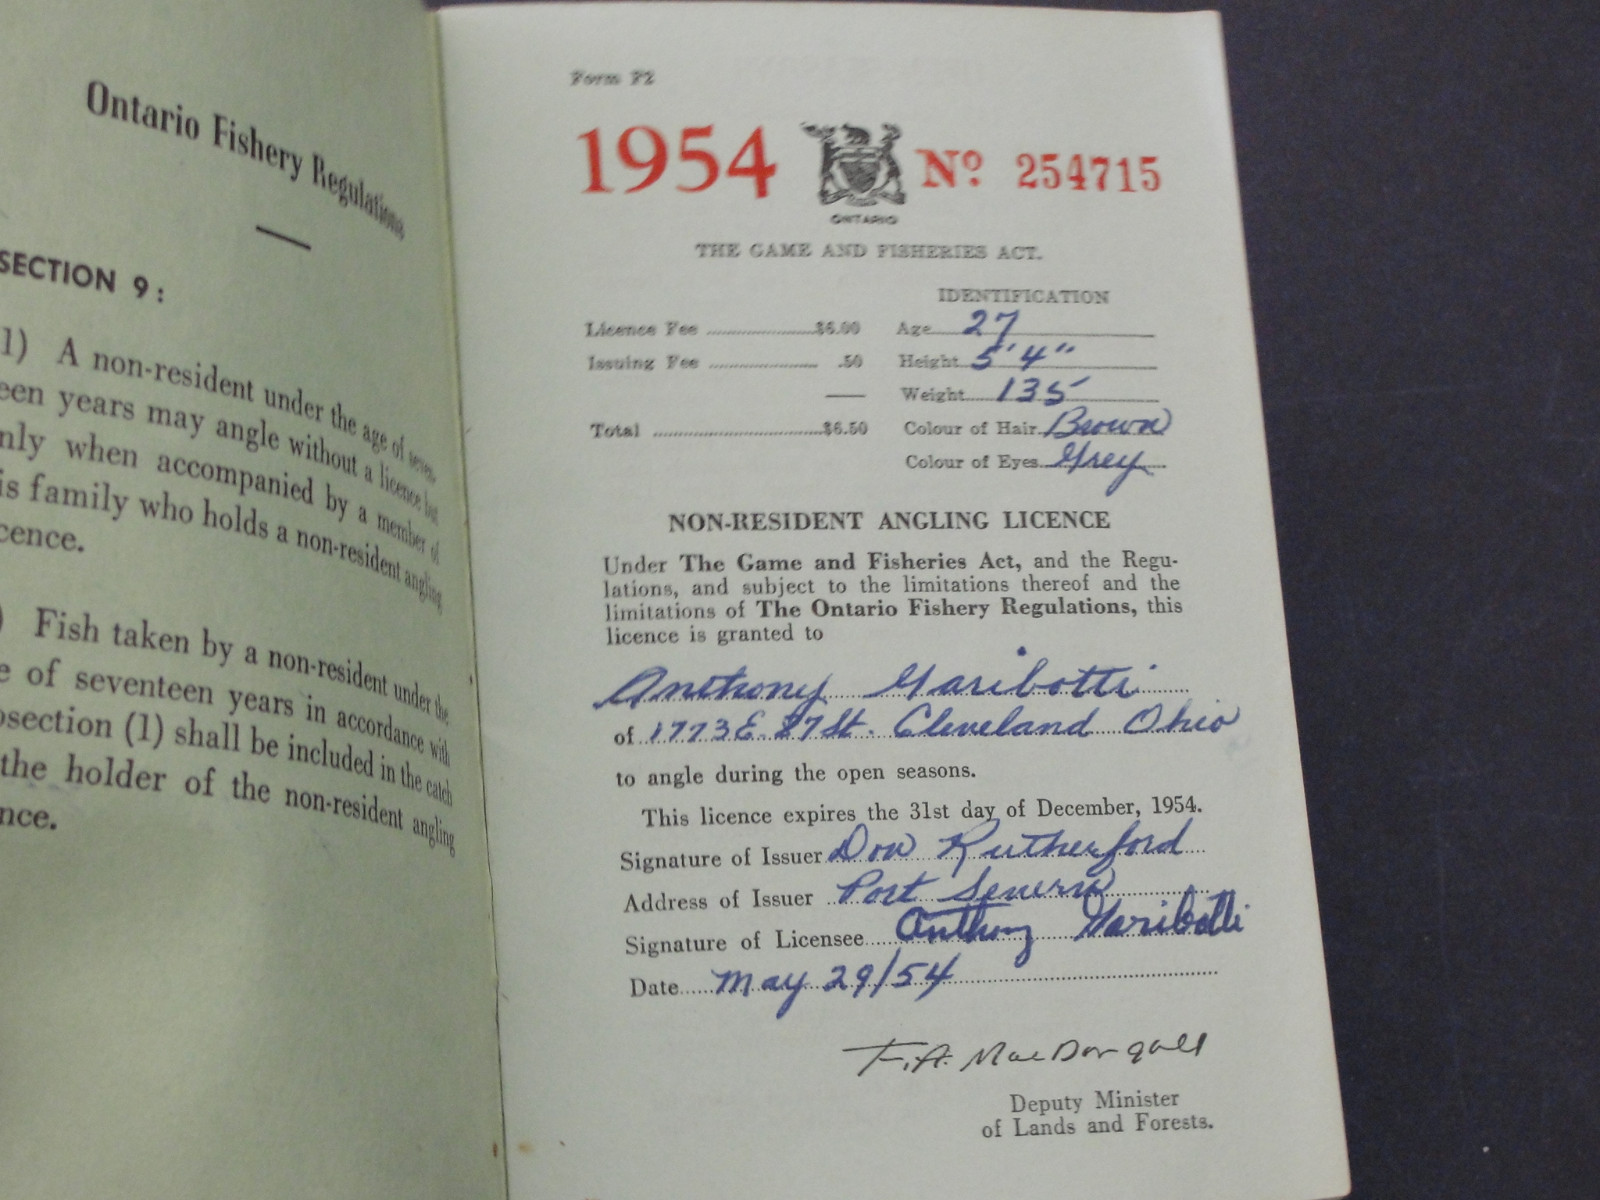 Ontario Fishery Regulations
SECTION 9:
1) A non-resident under the age of seven-
een years may angle without a licence but
nly when accompanied by a member of
is family who holds a non-resident angling
cence.
) Fish taken by a non-resident under the
e of seventeen years in accordance with
bsection (1) shall be included in the catch
the holder of the non-resident angling
nce.
Form F2
1954 No 254715
ONTARIO
THE GAME AND FISHERIES ACT.
IDENTIFICATION
Licence Fee $6.00 Age 27
Issuing Fee .50 Height 5'4"
Weight 135
Total $6.50 Colour of Hair Brown
Colour of Eyes Grey
NON-RESIDENT ANGLING LICENCE
Under The Game and Fisheries Act, and the Regu-
lations, and subject to the limitations thereof and the
limitations of The Ontario Fishery Regulations, this
licence is granted to
Anthony Garibotti
of 1773 E. 27 St. Cleveland Ohio
to angle during the open seasons.
This licence expires the 31st day of December, 1954.
Signature of Issuer Don Rutherford
Address of Issuer Port Severn
Signature of Licensee Anthony Garibotti
Date May 29/54
F.A. MacDougall
Deputy Minister
of Lands and Forests.